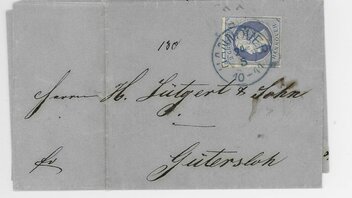 HANNOVER
10-11
130
Herrn H. Lütgert & Sohn
Gütersloh